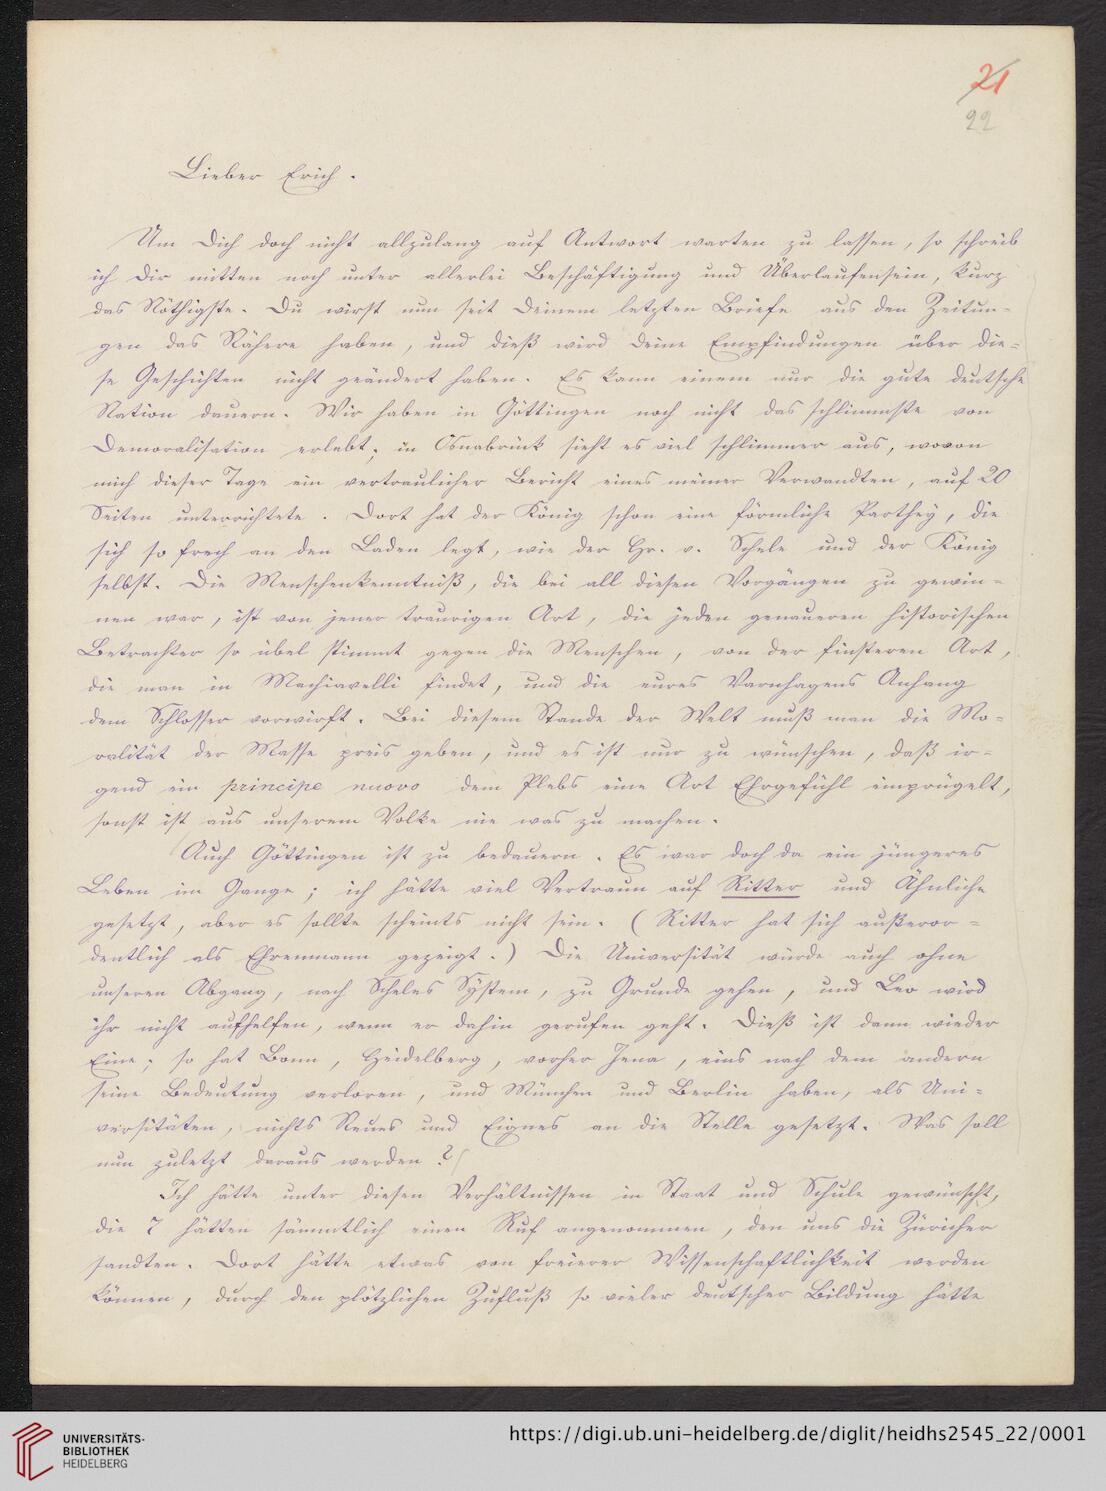 21
22
Lieber Erich.
Um Dich doch nicht allzulang auf Antwort warten zu lassen, so schreib
ich Dir mitten noch unter allerlei Beschäftigung und Überlaufensein, kurz
das Nöthigste. Du wirst nun seit Deinem letzten Briefe aus den Zeitun-
gen das Nähere haben, und dieß wird Deine Empfindungen über die-
se Geschichten nicht geändert haben. Es kann einem nur die gute deutsche
Nation dauern. Wir haben in Göttingen noch nicht das schlimmste von
Demoralisation erlebt; in Osnabrück sieht es viel schlimmer aus, wovon
mich dieser Tage ein vertraulicher Bericht eines meiner Verwandten, auf 20
Seiten unterrichtete. Dort hat der König schon eine förmliche Parthey, die
sich so frech an den Laden legt, wie der Hr. v. Schele und der König
selbst. Die Menschenkenntniß, die bei all diesen Vorgängen zu gewin-
nen war, ist von jener traurigen Art, die jeden genaueren historischen
Betrachter so übel stimmt gegen die Menschen, von der finsteren Art,
die man in Machiavelli findet, und die eures Varnhagens Anhang
dem Schlosser vorwirft. Bei diesem Stande der Welt muß man die Mo-
ralität der Masse preis geben, und es ist nur zu wünschen, daß ir-
gend ein principe nuovo dem Plebs eine Art Ehrgefühl einprügelt,
sonst ist aus unserem Volke nie was zu machen.
Auch Göttingen ist zu bedauern. Es war doch da ein jüngeres
Leben im Gange; ich hätte viel Vertraun auf Ritter und Ähnliche
gesetzt, aber es sollte scheints nicht sein. (Ritter hat sich außeror-
dentlich als Ehrenmann gezeigt.) Die Universität würde auch ohne
unseren Abgang, nach Scheles System, zu Grunde gehen, und Leo wird
ihr nicht aufhelfen, wenn er dahin gerufen geht. Dieß ist dann wieder
Eine; so hat Bonn, Heidelberg, vorher Jena, eins nach dem andern
seine Bedeutung verloren, und München und Berlin haben, als Uni-
versitäten, nichts Neues und Eignes an die Stelle gesetzt. Was soll
nun zuletzt daraus werden?
Ich hätte unter diesen Verhältnissen in Staat und Schule gewünscht,
die 7 hätten sämmtlich einen Ruf angenommen, den uns die Züricher
sandten. Dort hätte etwas von freierer Wissenschaftlichkeit werden
können, durch den plötzlichen Zufluß so vieler deutscher Bildung hätte
UNIVERSITÄTS-
BIBLIOTHEK
HEIDELBERG
https://digi.ub.uni-heidelberg.de/diglit/heidhs2545_22/0001